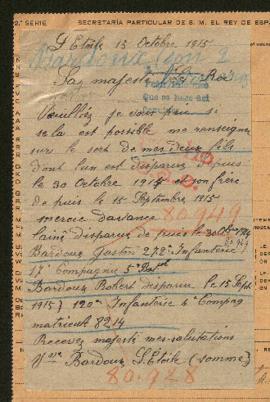 2.ª SERIE SECRETARÍA PARTICULAR DE S. M. EL REY DE ESPA
L'Etoile 15 Octobre 1915
Sa majesté Roi
Veuillez je vous pri si
sela est possible me renseigner
sur le sort de mes deux fils
dont l'un est disparus depuis
le 30 Octobre 1914 et son frère
de puis le 15 Septembre 1915
mercie davance 80.949
lainé disparus de puis le 30 Obre 1914
Bardoux Gaston 272e Infanterie
17e Compagnie 5e
Bardoux Robert disparu le 15 Sept
1915 120e Infanterie 4e Compag
matricule 8214
Recevez majesté mes salutations
Vve Bardoux L'Etoile (somme)
80.948